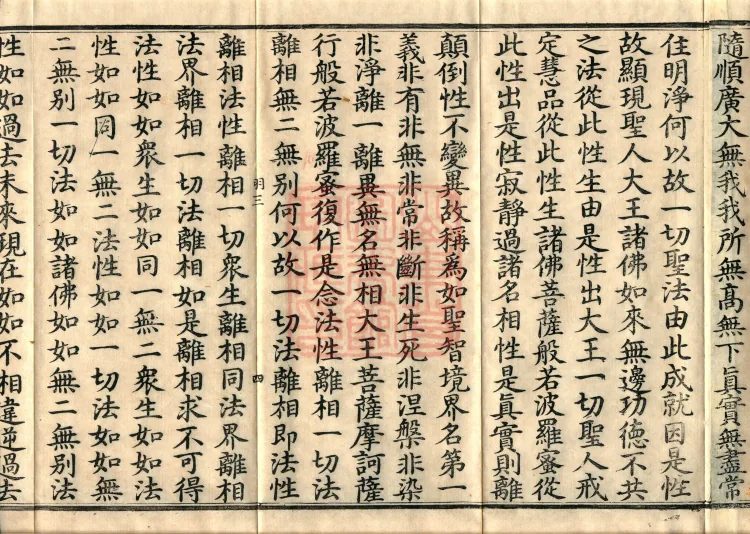 隨順廣大無我我所無高無下眞實無盡常
住明淨何以故一切聖法由此成就因是性
故顯現聖人大王諸佛如來無邊功德不共
之法從此性生由是性出大王一切聖人戒
定慧品從此性生諸佛菩薩般若波羅蜜從
此性出是性寂靜過諸名相性是眞實則離
顛倒性不變異故稱爲如聖智境界名第一
義非有非無非常非斷非生死非涅槃非染
非淨離一離異無名無相大王菩薩摩訶薩
行般若波羅蜜復作是念法性離相一切法
離相無二無別何以故一切法離相即法性
明三 四
離相法性離相一切衆生離相同法界離相
法界離相一切法離相如是離相求不可得
法性如如衆生如如同一無二衆生如如法
性如如同一無二法性如如一切法如如無
二無別一切法如如諸佛如如無二無別法
性如如過去未來現在如如不相違逆過去